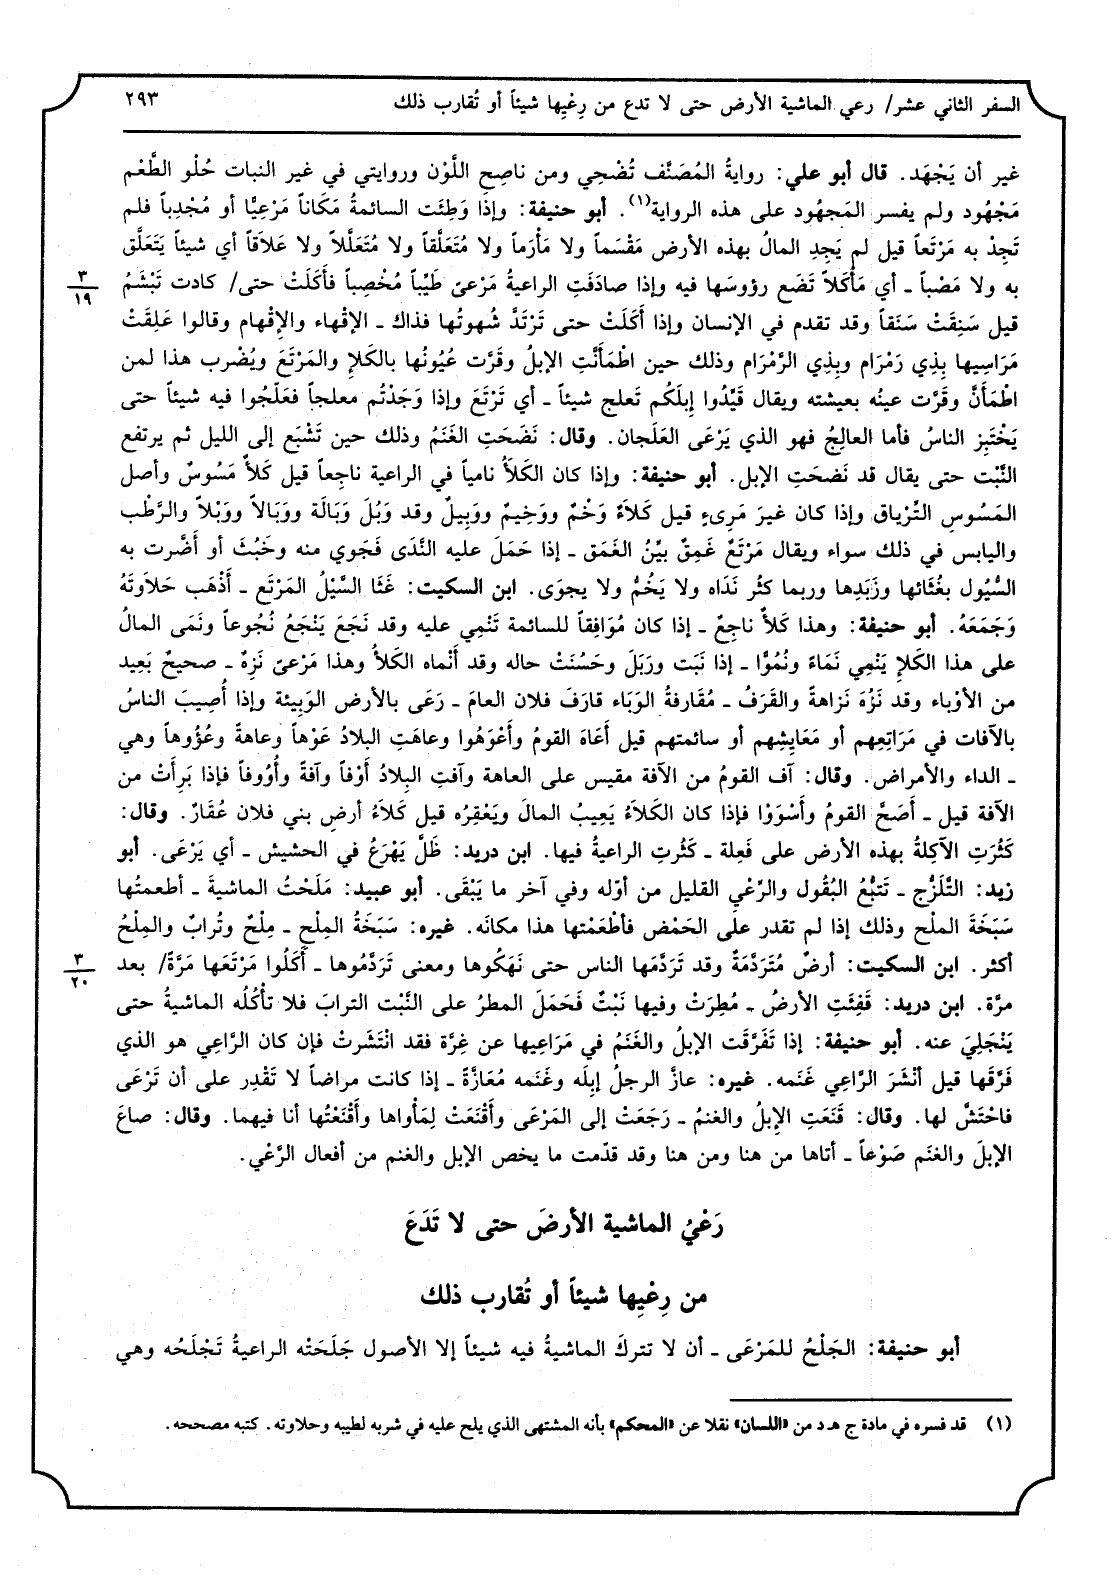 السفر الثاني عشر/ رعي الماشية الأرض حتى لا تدع من رِعْيِها شيئاً أو تُقارب ذلك
٢٩٣
غير أن يَجْهَد. قال أبو علي: روايةُ المُصَنَّف تُضْحِي ومن ناصِحِ اللَّوْن وروايتي في غير النبات حُلْو الطَّعْم
مَجْهُود ولم يفسر المَجهُود على هذه الرواية(١). أبو حنيفة: وإذا وَطِئَت السائمةُ مَكَاناً مَرْعِيًّا أو مُجْدِباً فلم
تَجِدْ به مَرْتَعاً قيل لم يَجِدِ المالُ بهذه الأرض مَقْسَماً ولا مَأْرَماً ولا مُتَعَلَّقاً ولا مُتَعَلَّلاً ولا عَلاَقاً أي شيئاً يَتَعَلَّق
٣
١٩
به ولا مَصْباً ـ أي مَأْكَلاً تَضَع رؤوسَها فيه وإذا صادَفَتِ الراعيةُ مَرْعىً طَيِّباً مُخْصِباً فأَكَلَتْ حتى/ كادت تَبْشَمُ
قيل سَنِقَتْ سَنَقاً وقد تقدم في الإنسان وإذا أَكَلَتْ حتى تَرْتَدَّ شَهوتُها فذاك ـ الإقْهاء والإقْهام وقالوا عَلِقَتْ
مَرَاسِيها بِذِي رَمْرَام وبِذِي الرَّمْرَام وذلك حين اطْمَأَنَّتِ الإبلُ وقَرَّت عُيُونُها بالكَلإِ والمَرْتَعَ ويُضْرب هذا لمن
اطْمَأَنَّ وقَرَّت عينُه بعيشته ويقال قَيِّدُوا إبلَكُم تَعلج شيئاً ـ أي تَرْتَعَ وإذا وَجَدْتُم معلجاً فعَلِّجُوا فيه شيئاً حتى
يَخْتَبِز الناسُ فأما العالِجُ فهو الذي يَرْعَى العَلَجان. وقال: نَضَحَتِ الغَنَمُ وذلك حين تَشْبَع إلى الليل ثم يرتفع
النَّبْت حتى يقال قد نَضحَتِ الإبل. أبو حنيفة: وإذا كان الكَلأُ نامياً في الراعية ناجِعاً قيل كَلأٌ مَسُوسٌ وأصل
المَسُوسِ التِّرْياق وإذا كان غيرَ مَرِيءٍ قيل كَلاَءٌ وَخْمٌ ووَخِيمٌ ووَبِيلٌ وقد وَبُلَ وَبَالَة ووَبَالاً ووَبْلاً والرَّطْب
واليابس في ذلك سواء ويقال مَرْتَعٌ غَمِقٌ بيِّنُ الغَمَق ـ إذا حَمَلَ عليه النَّدَى فَجَوِي منه وخَبُثَ أو أَضَّرت به
السُّيُول بغُثَائها وزَبَدِها وربما كثُر نَدَاه ولا يَخُمُّ ولا يجوَى. ابن السكيت: غَثَا السَّيْلُ المَرْتَع ـ أَذْهَب حَلاَوتَهُ
وَجَمَعَهُ. أبو حنيفة: وهذا كَلأٌ ناجِعٌ ـ إذا كان مُوَافِقاً للسائمة تَنْمِي عليه وقد نَجَعَ يَنْجَعُ نُجُوعاً ونَمَى المال
على هذا الكَلإِ يَنْمِي نَمَاءً ونُمُوًّا ـ إذا نَبَت ورَبَلَ وحَسُنَتْ حاله وقد أَنْماه الكَلأُ وهذا مَرْعىً نَزِهٌ ـ صحيحٌ بَعِيد
من الأَوْباء وقد نَزُهَ نَزاهةً والقَرَفُ ـ مُقَارفةُ الوَبَاء قارَفَ فلان العامَ ـ رَعَى بالأرض الوَبِيئة وإذا أُصِيبَ الناسُ
بالآفات في مَرَاتِعِهم أو مَعَايِشِهم أو سائمتهم قيل أَعَاهَ القومُ وأَعْوَهُوا وعاهَتِ البلادُ عَوْهاً وعاهةً وعُؤُوهاً وهي
ـ الداء والأمراض. وقال: آف القومُ من الآفة مقيس على العاهة وآفتِ البلادُ أَوْفاً وآفةً وأُوُوفاً فإذا بَرِأَتْ من
الآفة قيل ـ أَصَحَّ القومُ وأَسْوَوْا فإذا كان الكَلاَءُ يَعِيبُ المالَ ويَعْقِره قيل كَلاَءُ أرضِ بني فلان عُقَارٌ. وقال:
كَثُرَتِ الآكِلةُ بهذه الأرض على فَعِلة ـ كَثُرتِ الراعيةُ فيها. ابن دريد: ظَلَّ يَهْرَعُ في الحشيش ـ أي يَرْعَى. أبو
زيد: التَّلَزُّج ـ تَتبُّعُ البُقُول والرِّعْي القليل من أوّله وفي آخر ما يَبْقَى. أبو عبيد: مَلَحْتُ الماشيةَ ـ أطعمتُها
سَبَخَةَ الملح وذلك إذا لم تقدر على الحَمْض فأطْعَمْتها هذا مكانَه. غيره: سَبَخَةُ المِلْحِ ـ مِلْحٌ وتُرابٌ والمِلْحُ
أكثر. ابن السكيت: أرضٌ مُتَردَّمَةٌ وقد تَرَدَّمَها الناس حتى نَهَكُوها ومعنى تَرَدَّمُوها ـ أَكَلُوا مَرْتَعَها مَرَّةً/ بعد
٣
٢٠
مرّة. ابن دريد: قَفِئَتِ الأرضُ ـ مُطِرَتْ وفيها نَبْتٌ فَحَمَلَ المطرُ على النَّبْت الترابَ فلا تأْكُلُه الماشيةُ حتى
يَنْجَلِيَ عنه. أبو حنيفة: إذا تَفَرَّقَت الإبلُ والغَنَمُ في مَرَاعِيها عن غِرَّة فقد انْتَشَرتْ فإن كان الرَّاعِي هو الذي
فَرَّقَها قيل أنْشَرَ الرَّاعِي غَنَمه. غيره: عازَّ الرجلُ إبِلَه وغَنَمه مُعَازَّةً ـ إذا كانت مراضاً لا تَقْدِر على أن تَرْعَى
فاحْتَشَّ لها. وقال: قَنَعَتِ الإبلُ والغنمُ ـ رَجَعَتْ إلى المَرْعَى وأَقْنَعَتْ لِمَأواها وأَقْنَعْتُها أنا فيهما. وقال: صاعَ
الإبلَ والغنَم صَوْعاً ـ أتاها من هنا ومن هنا وقد قدّمت ما يخص الإبل والغنم من أفعال الرَّعْي.
رَعْيُ الماشية الأرضَ حتى لا تَدَعَ
من رِعْيِها شيئاً أو تُقارب ذلك
أبو حنيفة: الجَلْحُ للمَرْعَى ـ أن لا تتركَ الماشيةُ فيه شيئاً إلا الأصول جَلَحَتْه الراعيةُ تَجْلَحُه وهي
(١) قد فسره في مادة ج هـ د من «اللسان» نقلا عن «المحكم» بأنه المشتهى الذي يلح عليه في شربه لطيبه وحلاوته. كتبه مصححه.